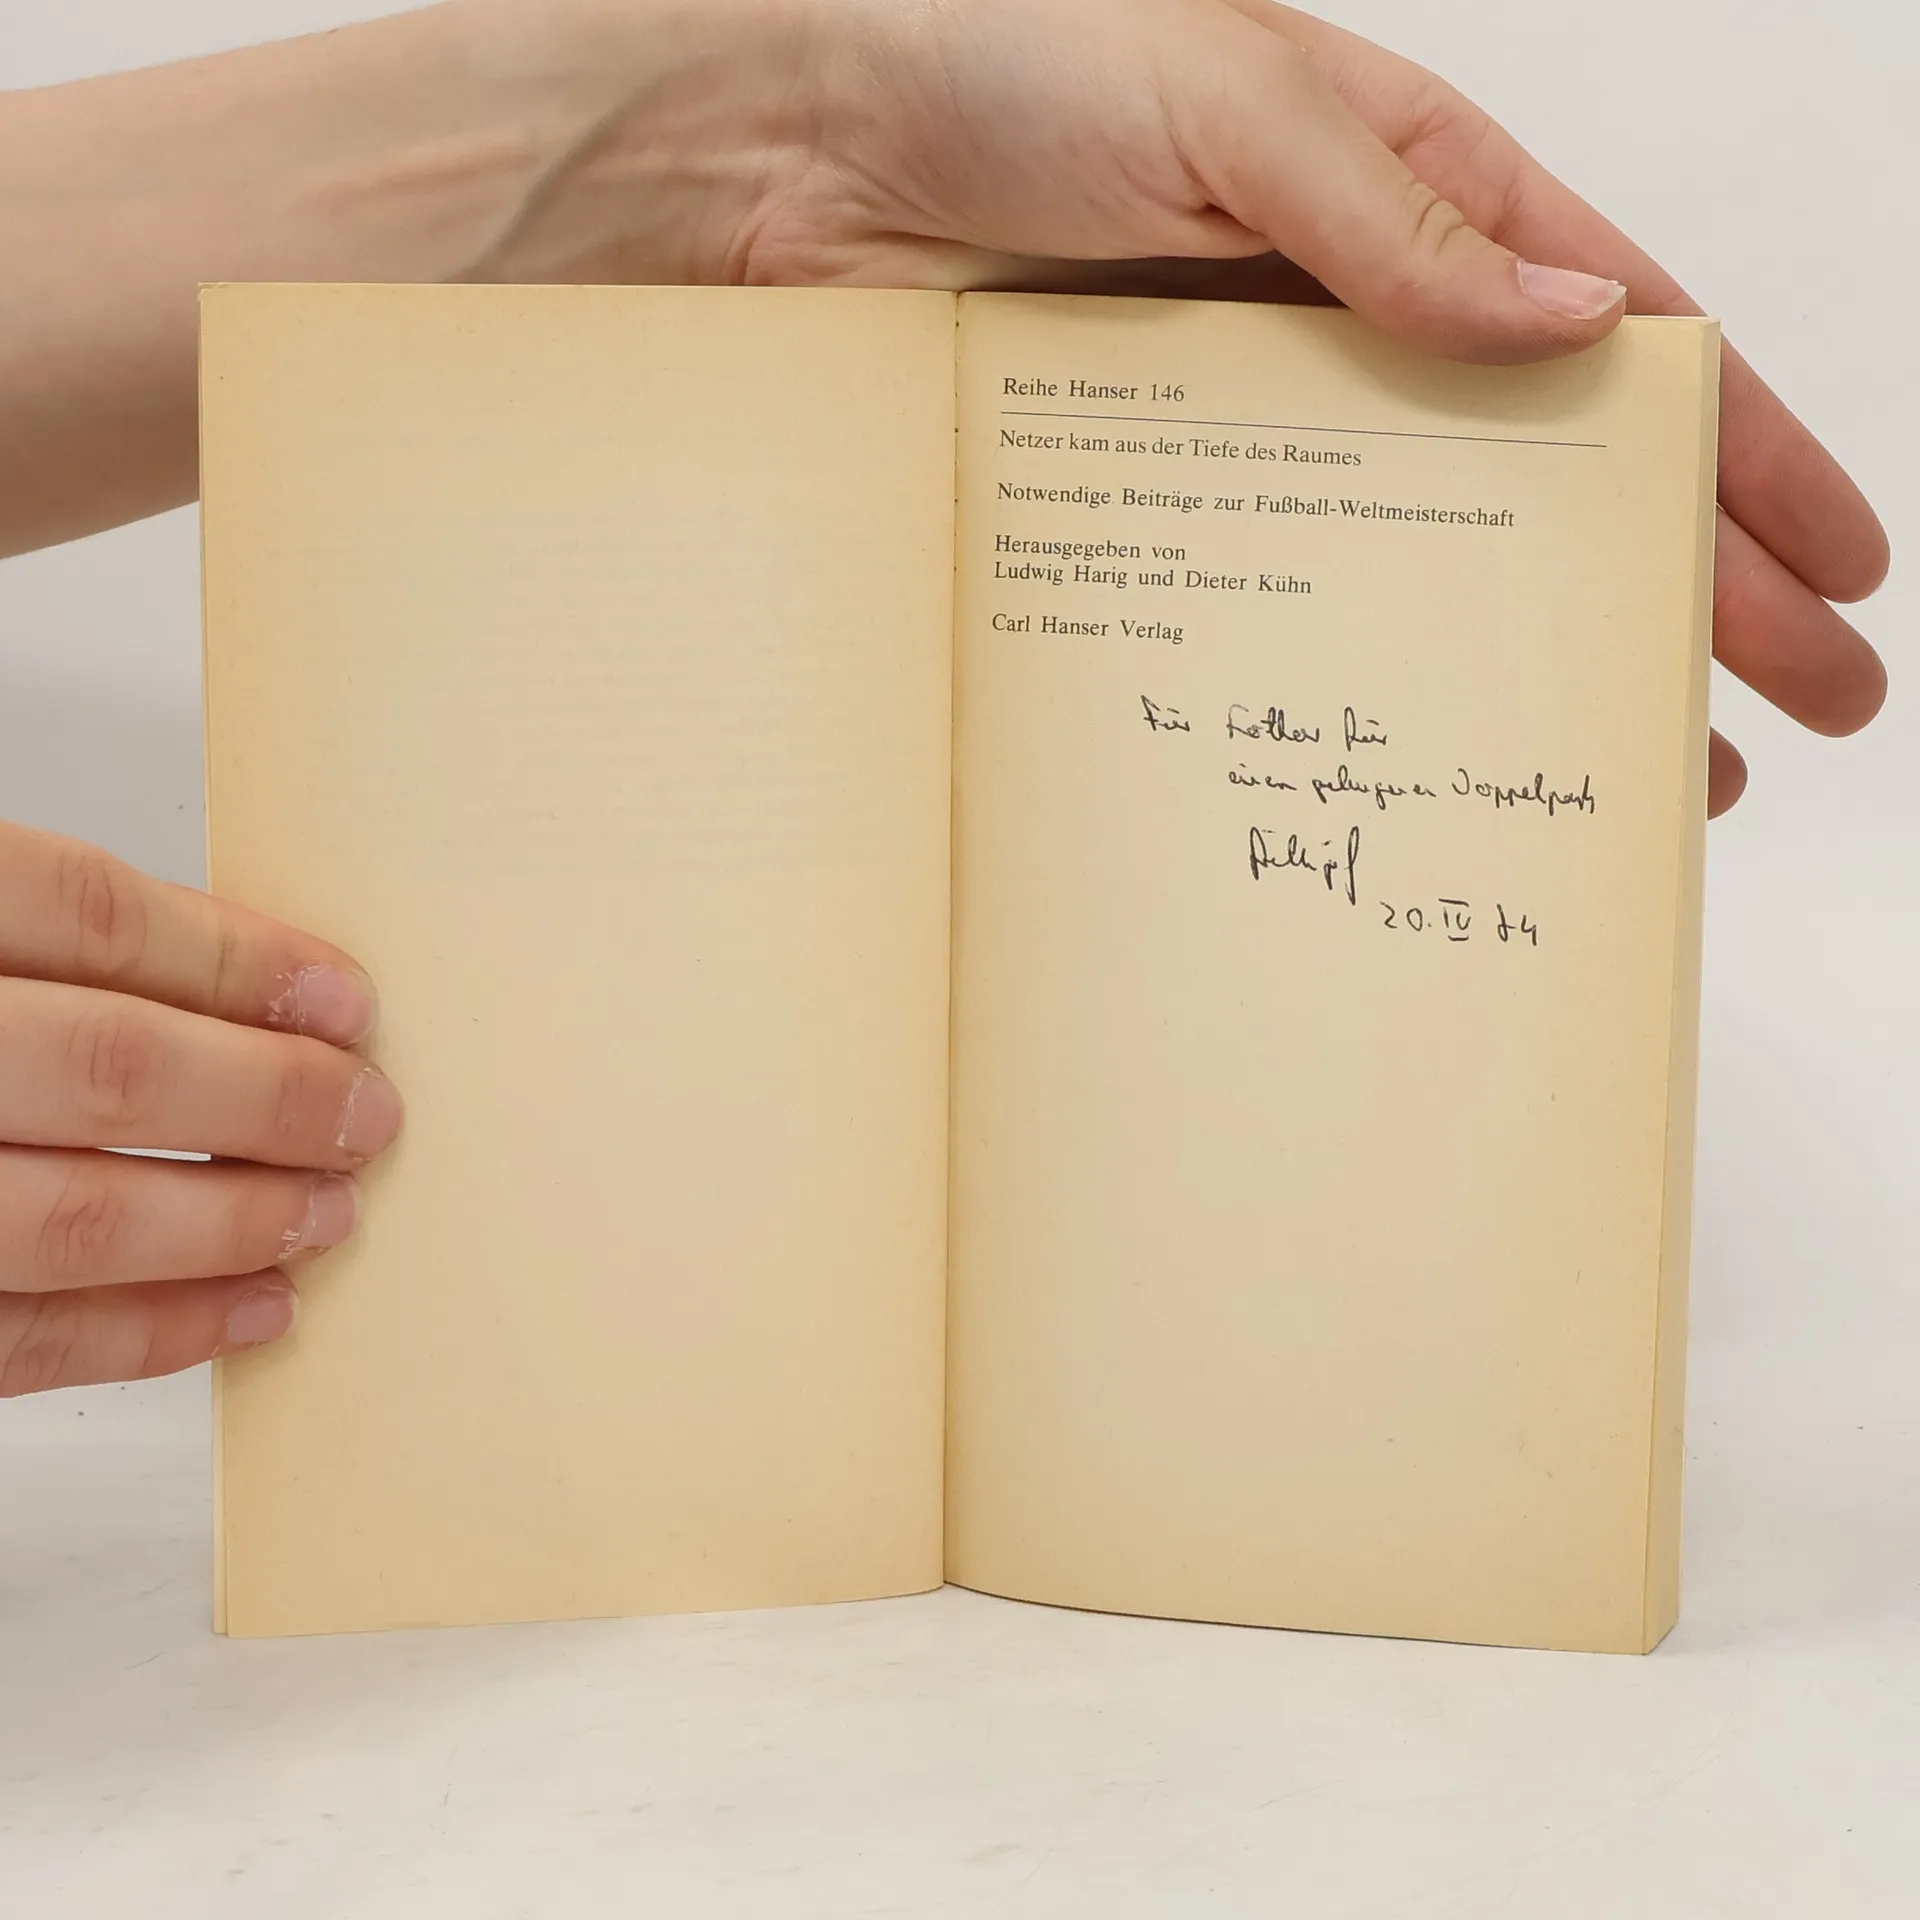 Reihe Hanser 146
Netzer kam aus der Tiefe des Raumes
Notwendige Beiträge zur Fußball-Weltmeisterschaft
Herausgegeben von
Ludwig Harig und Dieter Kühn
Carl Hanser Verlag
Für Lothar für
einen gelungenen Doppelpaß
20. IV 74